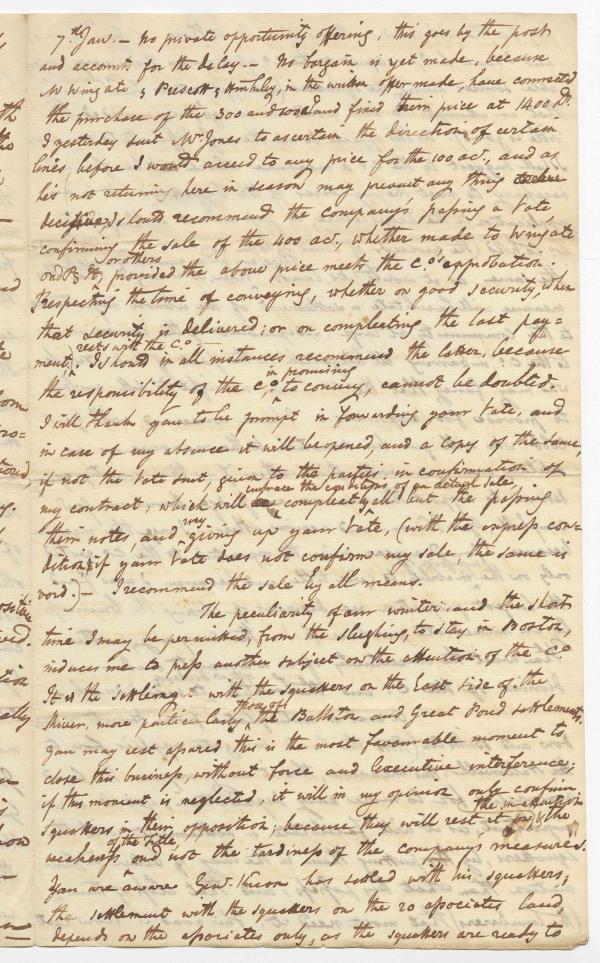 7th Jan. – No private opportunity offering, this goes by the post
and accounts for the delay. – No bargain is yet made, because
Mr Wingate & Prescott & in the written offer made, have connected
the purchase of the 300 and 100 and fixed their price at 1400 D.
I yesterday sent Mr Jones to ascertain the direction of certain
lines, before I would acceed to any price for the 100 ac., and as
his not returning here in season may prevent any thing
decisive, I should recommend the company's passing a Vote,
confirming the sale of the 400 ac., whether made to Wingate
and P. & H, or others provided the above price meets the Co.'s approbation.
Respecting the time of conveying, whether on good security, when
that security is delivered; or on compleating the last pay-
ment, rests with the Co. I should in all instances recommend the latter, because
the responsibility of the Co. in promising to convey, cannot be doubted.
I will thank you to be prompt in forwarding your Vote, and
in case of my absence it will be opened, and a copy of the same,
if not the Vote sent, given to the parties in confirmation of
my contract; which will embrace the conditions of an actual sale, compleatly all but the passing
their notes, and my giving up your Vote, (with the express con-
dition, if your Vote does not confirm my sale, the same is
void.) – I recommend the sale by all means.
The peculiarity of our winter and the short
time I may be permitted, from the sleighing, to stay in Boston,
induces me to press another subject on the attention of the Co.
It is the settleing with the squatters on the East side of the
River, more particularly those of the Ballston and Great Pond settlements.
you may rest assured this is the most favourable moment to
close this business, without force and Executive interference;
if this moment is neglected, it will in my opinion only confirm
squatters in their opposition; because they will rest it on the inattention & the
weakness of the title, and not the tardiness of the company's measures.
You are aware Genl. Knox has settled with his squatters;
the settlement with the squatters on the 20 associates land,
depends on the associates only, as the squatters are ready to